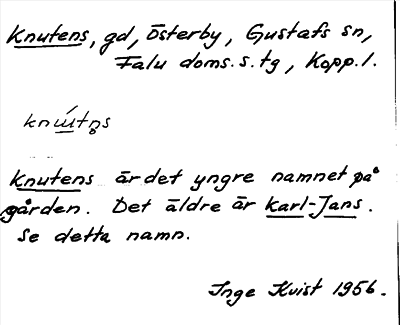 Knutens, gd, Österby, Gustafs sn,
Falu doms. s. tg, Kopp. l.
Knutens är det yngre namnet på
gården. Det äldre är Karl-Jans.
Se detta namn.
Inge Kvist 1956.